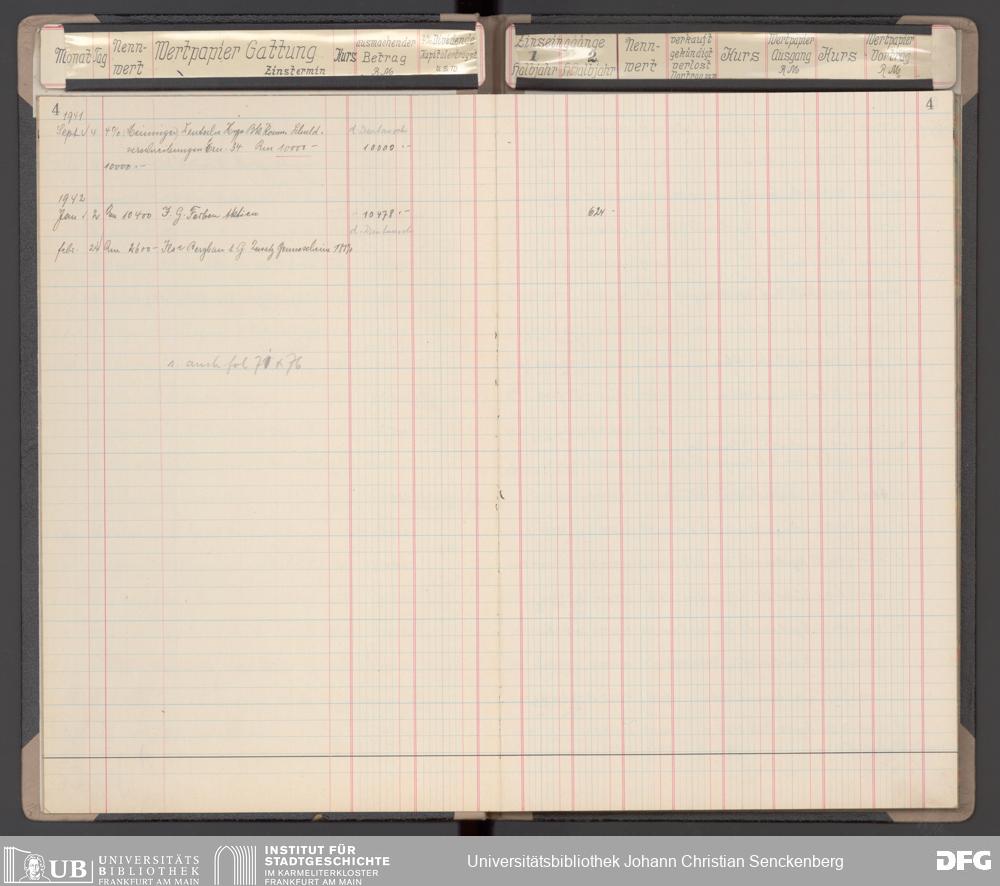 Monat Tag Nenn-wert Wertpapier Gattung Zinstermin Kurs ausmachender Betrag R.M.
Zinseingänge 1 Halbjahr 2. Halbjahr Nenn-wert verkauft gekündigt verlost Kurs Wertpapier Ausgang R.M. Kurs Wertpapier Vortrag R.M.
4
4
1941
Sept. 4 4% Meininger Deutsche Hyp. Bk Komm. Schuld-
verschreibungen Em. 34 Rm 10000 -
10000.-
10000.-
1942
Jan. 2 Rm 10400 I. G. Farben Aktien 10478.- 624 -
d. Umtausch
Febr. 24 Rm 2600 - Ilse Bergbau A G
s. auch fol 71 + 76
UB UNIVERSITÄTS
BIBLIOTHEK
FRANKFURT AM MAIN
INSTITUT FÜR
STADTGESCHICHTE
IM KARMELITERKLOSTER
FRANKFURT AM MAIN
Universitätsbibliothek Johann Christian Senckenberg
DFG